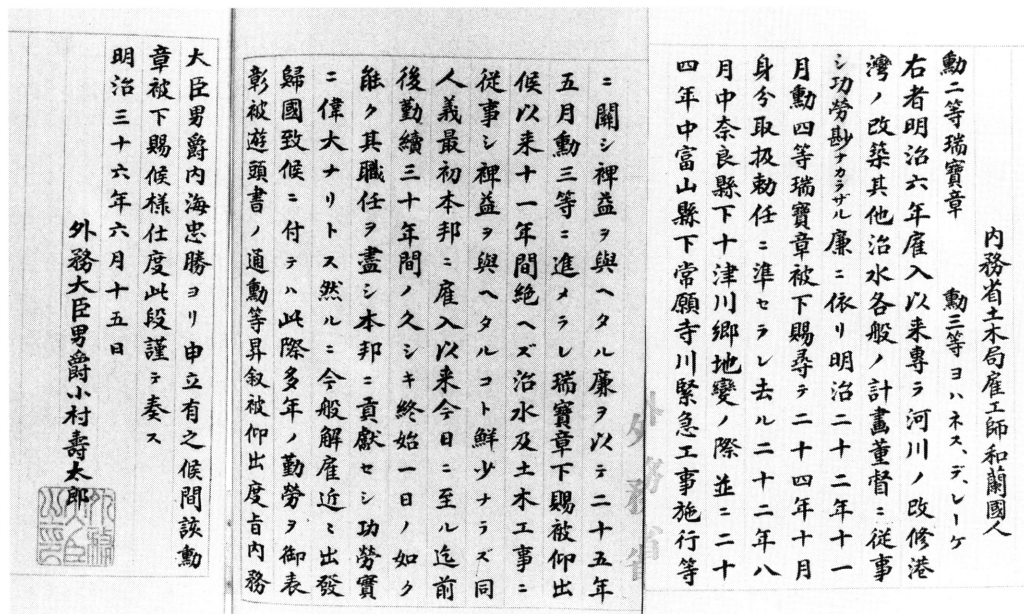 内務省土木局雇工師和蘭國人
勲二等瑞寶章 勲三等ヨハネス、デ、レーケ
右者明治六年雇入以来専ラ河川ノ改修港
灣ノ改築其他治水各般ノ計畫董督ニ従事
シ功勞尠ナカラザル廉ニ依リ明治二十二年十一
月勲四等瑞寶章被下賜尋テ二十四年十月
身分取扱勅任ニ準セラレ去ル二十二年八
月中奈良縣下十津川郷地變ノ際並ニ二十
四年中富山縣下常願寺川緊急工事施行等
ニ關シ裨益ヲ與ヘタル廉ヲ以テ二十五年
五月勲三等ニ進メラレ瑞寶章下賜被仰出
候以来十一年間絶ヘズ治水及土木工事ニ
従事シ裨益ヲ與ヘタルコト鮮少ナラズ同
人義最初本邦ニ雇入以来今日ニ至ル迄前
後勤續三十年間ノ久シキ終始一日ノ如ク
能ク其職任ヲ盡シ本邦ニ貢獻セシ功勞實
ニ偉大ナリトス然ルニ今般解雇近々出發
歸國致候ニ付テハ此際多年ノ勤勞ヲ御表
彰被遊頭書ノ通勲等昇叙被仰出度旨内務
大臣男爵内海忠勝ヨリ申立有之候間該勲
章被下賜候様仕度此段謹テ奏ス
明治三十六年六月十五日
外務大臣男爵小村壽太郎
外務省